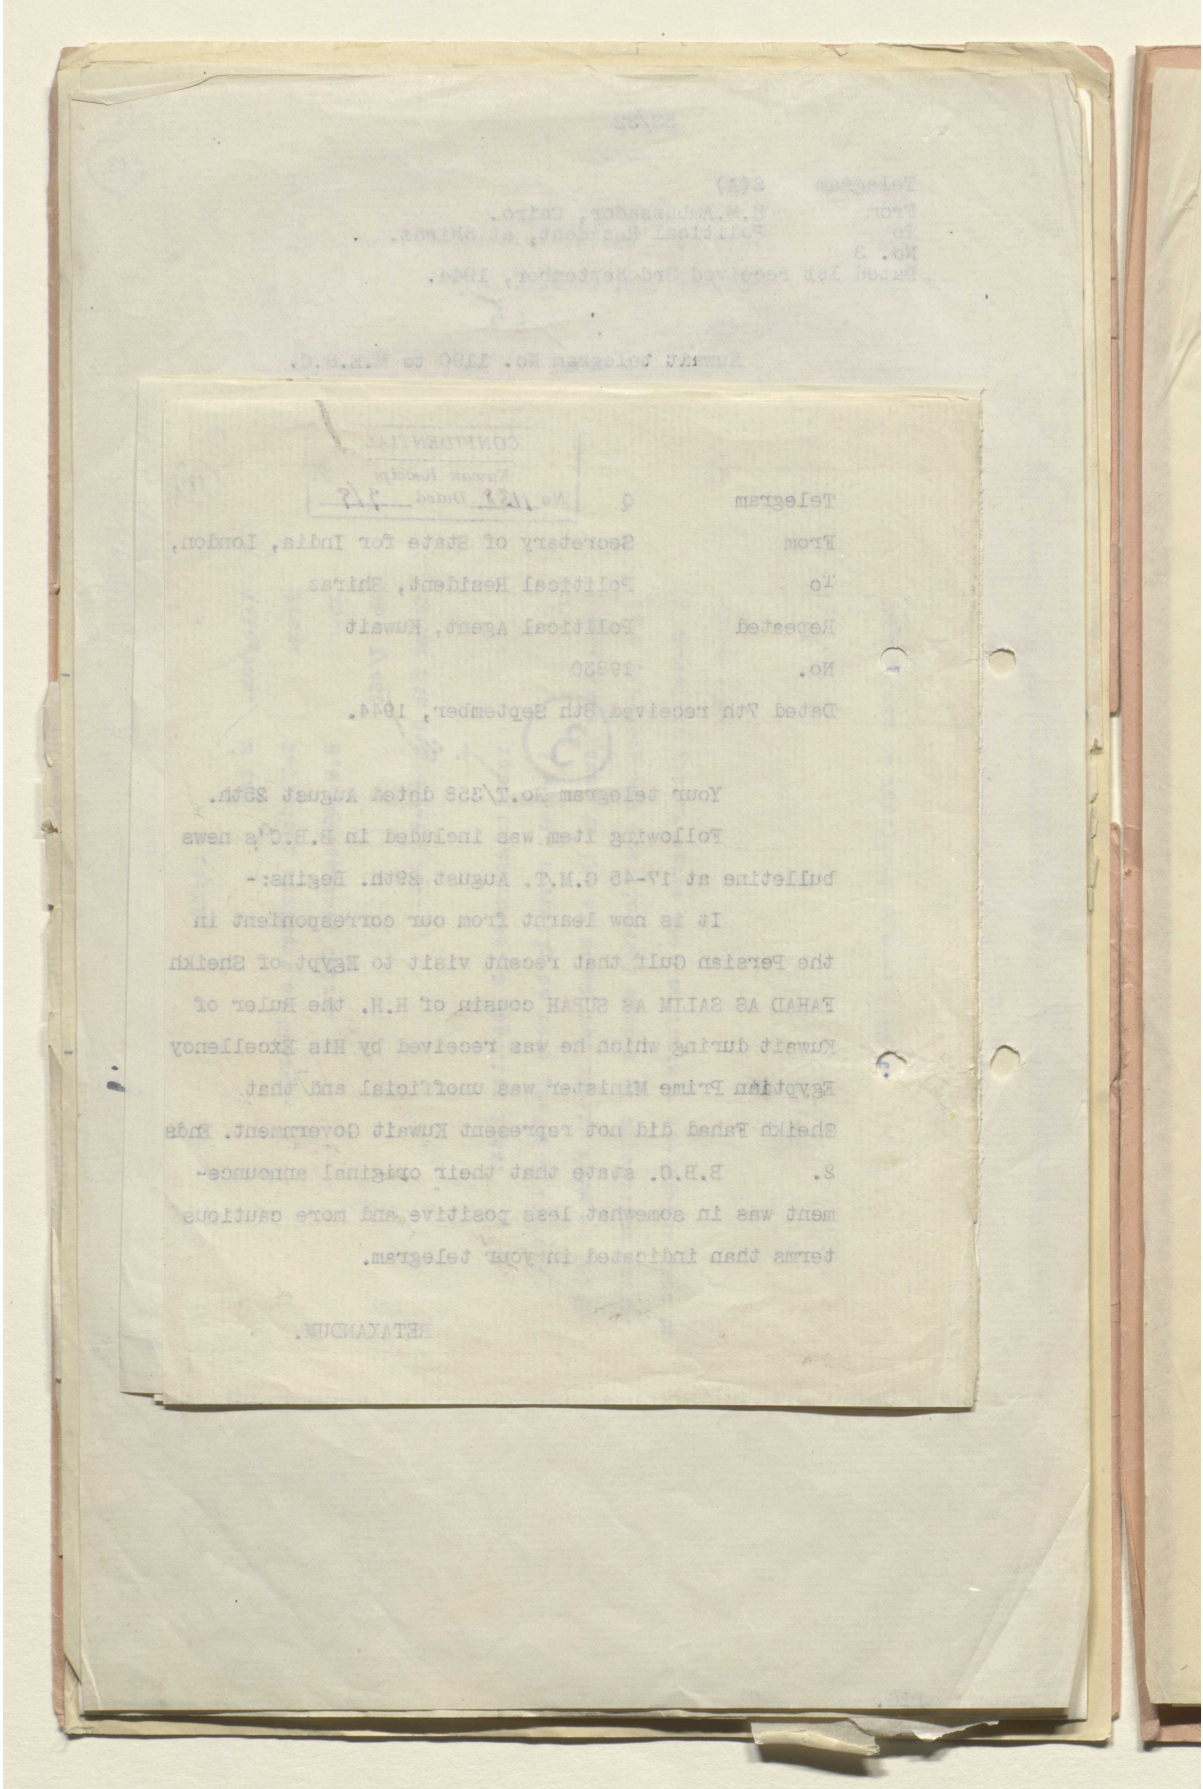 53/32
Telegram S(A)
From H.M.Ambassador, Cairo.
To Political Resident, at Shiraz.
No. 3
Dated 1st received 3rd September, 1944.
Kuwait telegram No. 1190 to M.E.S.C.
CONFIDENTIAL
Kuwait Receipt
No 1138 Dated 9/9
Telegram Q
From Secretary of State for India, London,
To Political Resident, Shiraz
Repeated Political Agent, Kuwait
No. 19830
Dated 7th received 8th September, 1944.
3
Your telegram No.T/358 dated August 25th.
Following item was included in B.B.C's news
bulletine at 17-45 G.M.T. August 29th. Begins:-
It is now learnt from our correspondent in
the Persian Gulf that recent visit to Egypt of Sheikh
FAHAD AS SALIM AS SUBAH cousin of H.H. the Ruler of
Kuwait during which he was received by His Excellency
Egyptian Prime Minister was unofficial and that
Sheikh Fahad did not represent Kuwait Government. Ends
2. B.B.C. state that their original announce-
ment was in somewhat less positive and more cautious
terms than indicated in your telegram.
RETAXANDUM.